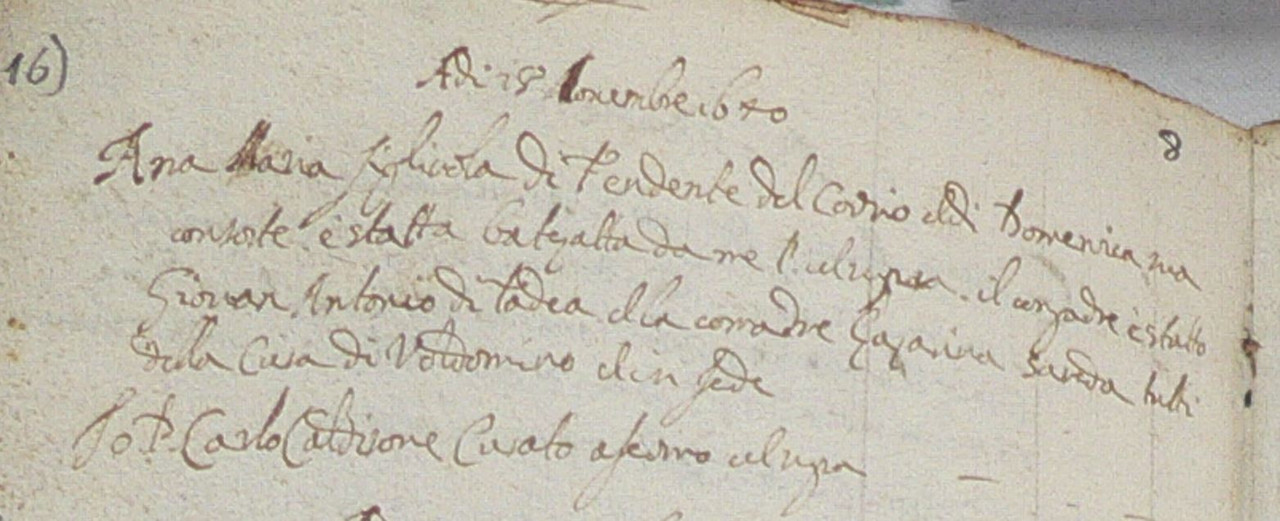 16)
Adi 18 Novembre 1640
8
Ana Maria figliola di Pendente del Corno et di Domenica sua
consorte è statta batezatta da me P. ut supra. il compadre è statto
Giovan Antonio di Tadea et la comadre Catarina Sarda tutti
della Cura di Voldomino et in fede
Io P. Carlo Cura­to afermo ut supra